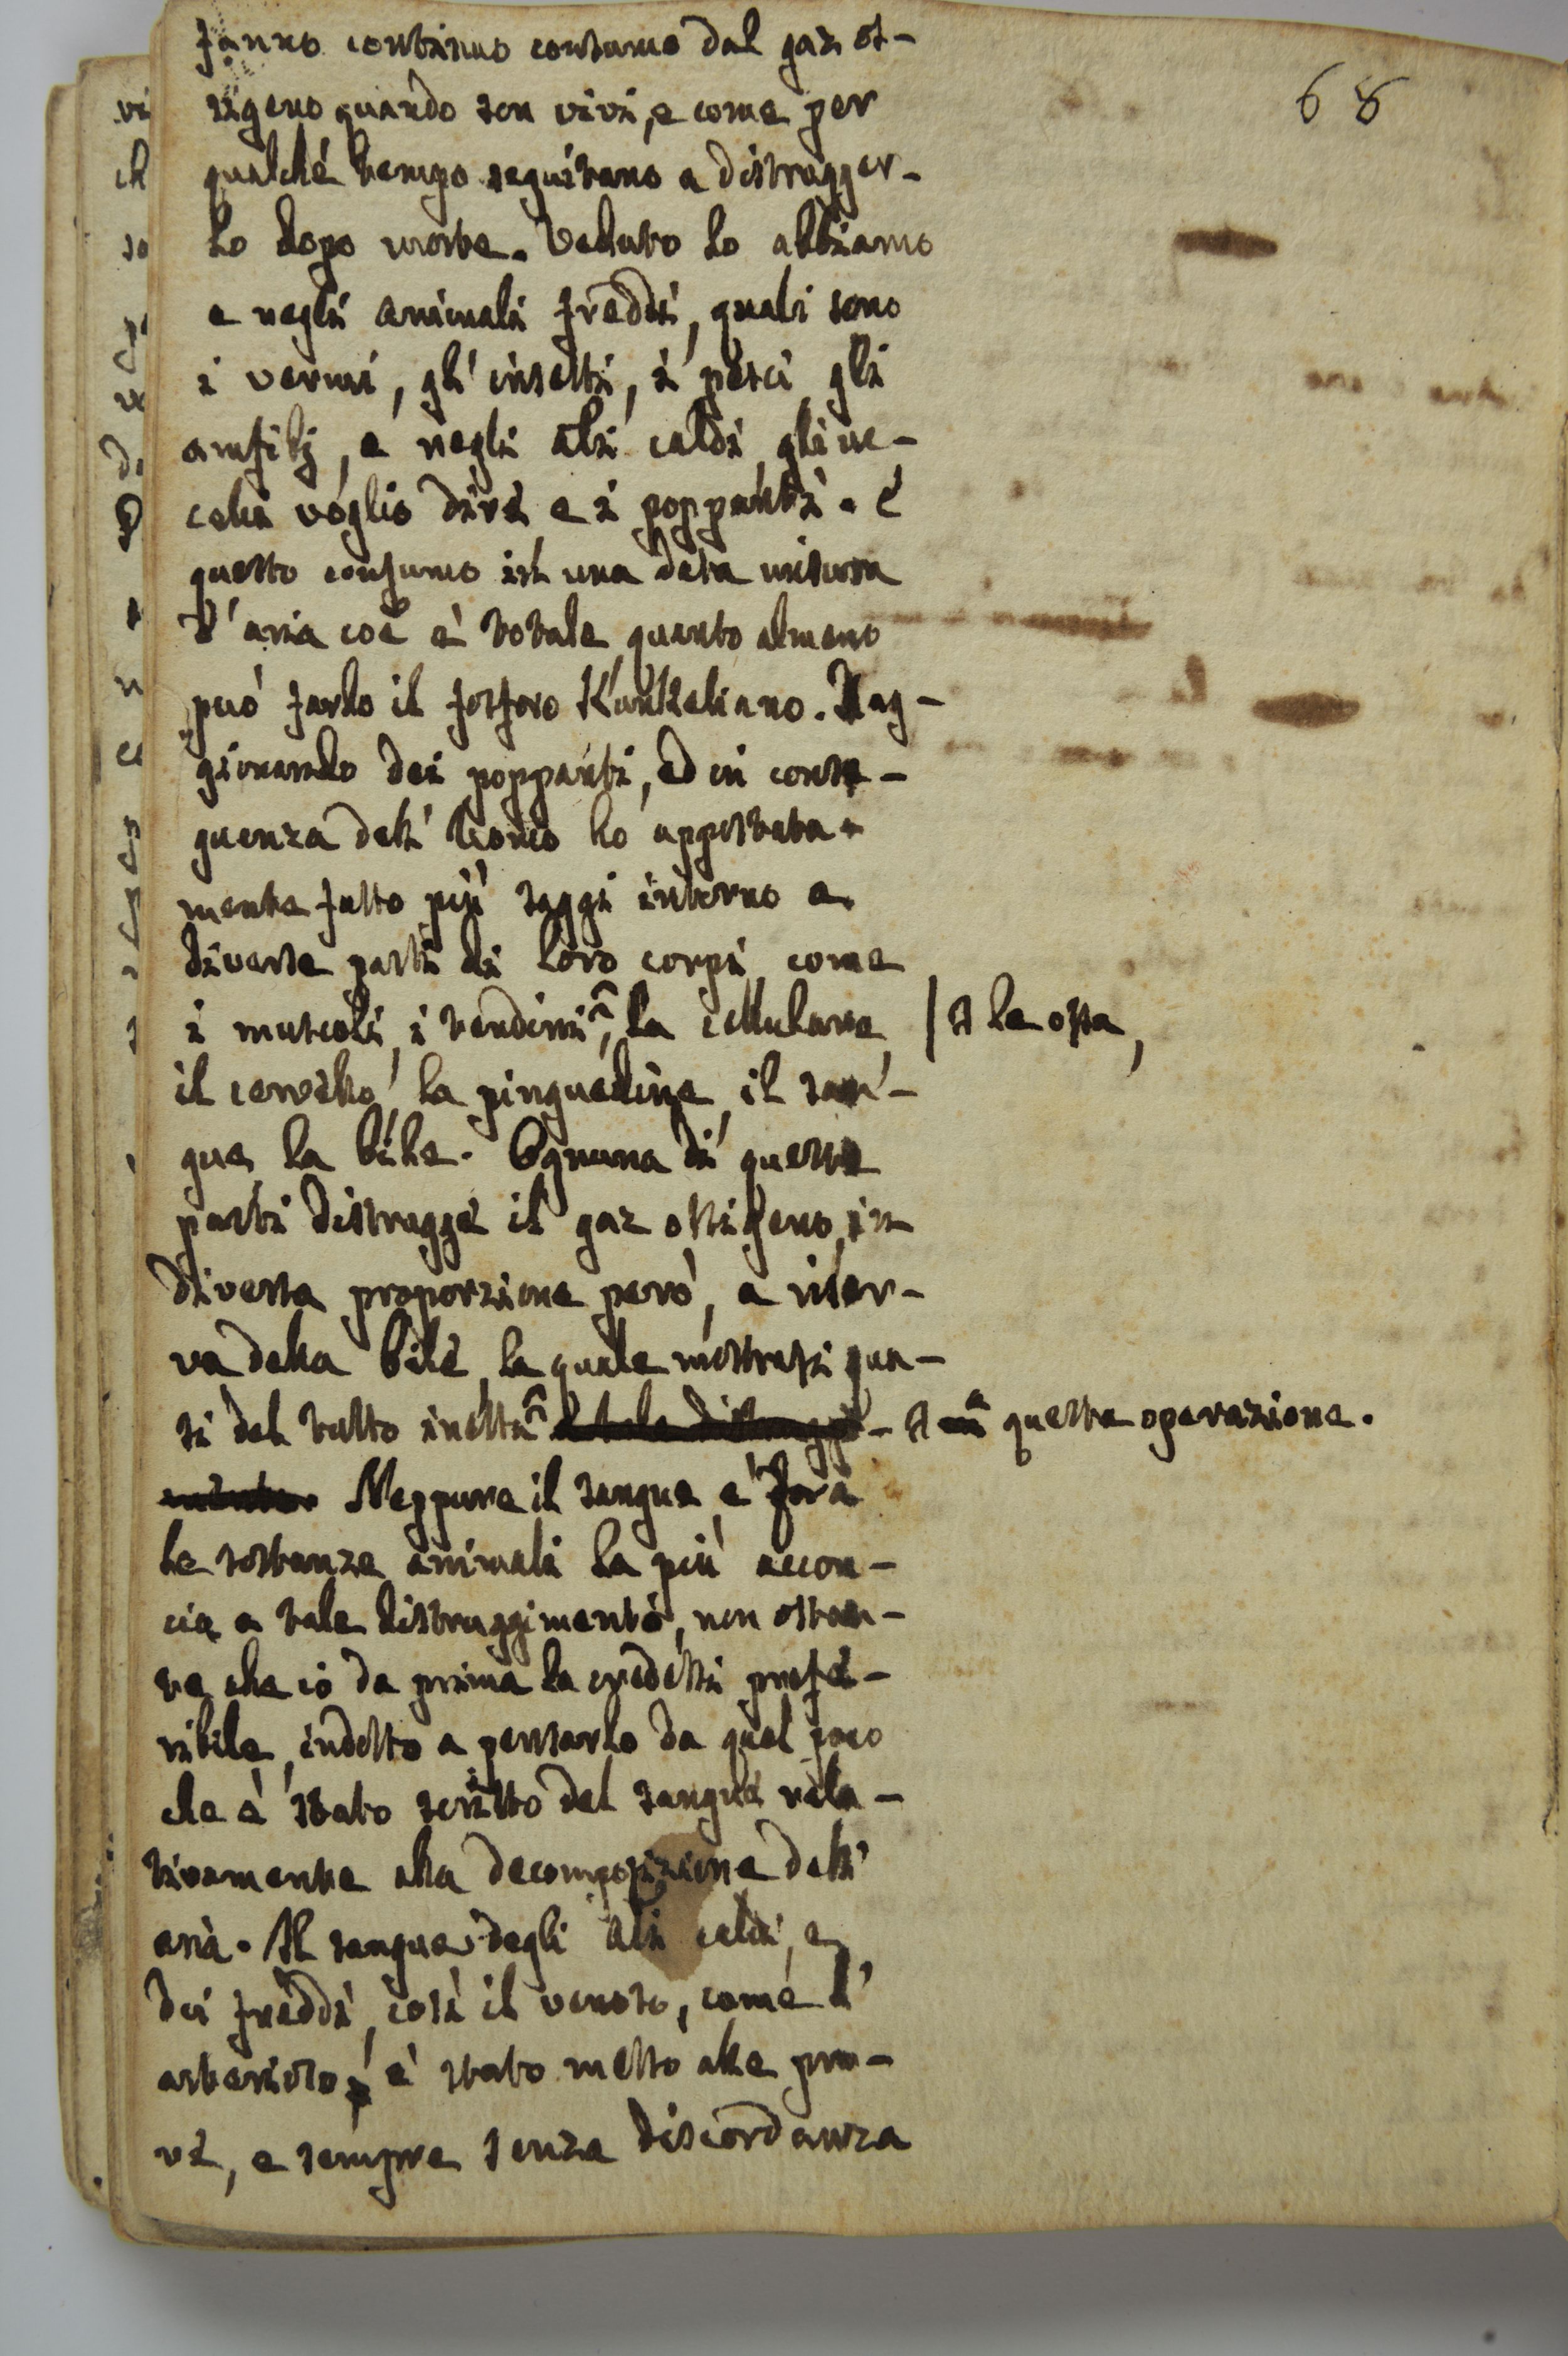 68
fanno continuo consumo dal gaz os-
sigeno quando son vivi, e come per
qualche tempo seguitano a distrugger-
lo dopo morte. Veduto lo abbiamo
e negli animali freddi, quali sono
i vermi, gl' insetti, i pesci gli
amfibj, e negli ali caldi, gli uc-
celli voglio dire, e i poppanti. E
questo consumo in una data misura
d' aria coe è totale quanto almeno
può farlo il fosforo Kunkeliano. Rag-
gionando dei poppanti, ed in conse-
guenza dell' Uomo ho appostata-
mente fatto più saggi intorno a
diverse parti di loro corpi come
i muscoli, i tendini, ^ la cellulare | ^ le ossa,
il cervello, la pinguedine, il san-
gue, la bile. Ognuna di queste
parti distrugge il gaz ossigeno, in
diversa proporzione però, a riser-
va della bile, la quale mostrasi qua-
si del tutto inetta ^ a tale distruggi- ^ a questa operazione.
mento. Neppure il sangue è fra
le sostanze animali la più accon-
cia a tale distruggimento, non ostan-
te che io da prima la credessi prefe-
ribile, indotto a pensarlo da quel poco
che è stato scritto del sangue rela-
tivamente alla decomposizione dell'
aria. Il sangue degli ali caldi, e
dei freddi, così il venoso, come l'
arterioso, è stato messo alle pro-
ve, e sempre senza discordanza